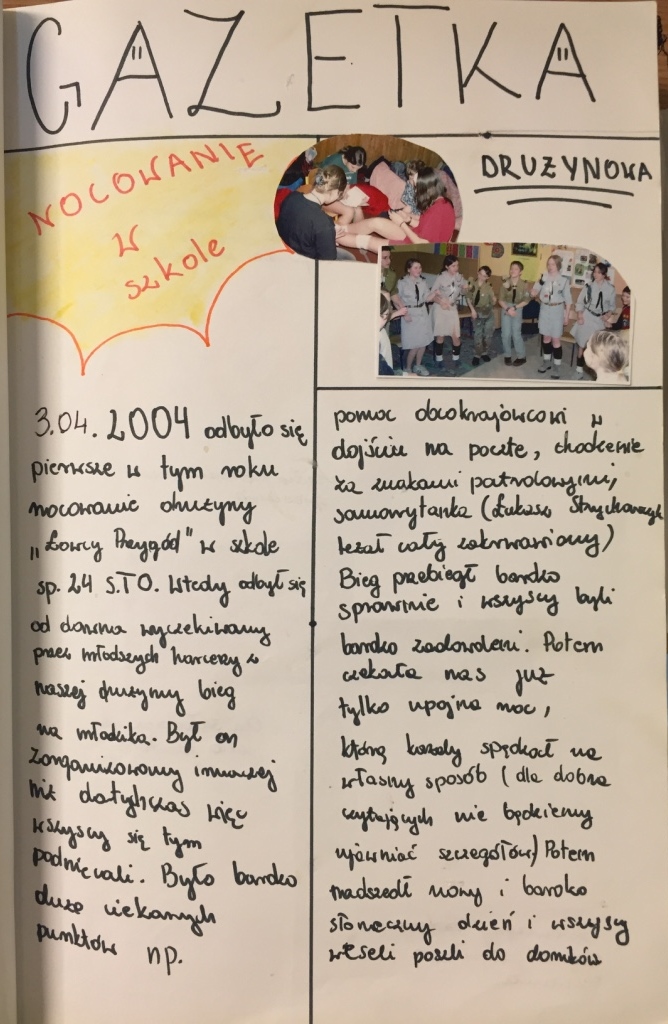 GAZETKA
NOCOWANIE
W
szkole
DRUŻYNOWA
3.04.2004 odbyło się
pierwsze w tym roku
nocowanie drużyny
"Łowcy Przygód" w szkole
sp. 24 S.TO. Wtedy odbył się
od dawna wyczekiwany
przez młodszych harcerzy z
naszej drużymy bieg
na młodzika. Był on
zorganizowany inaczej
niż dotychczas więc
wszyscy się tym
podniecali. Było bardzo
dużo ciekawych
punktów np.
pomoc obcokrajowcowi w
dojściu na pocztę, chodzenie
za znakami patrolowymi,
samarytanka (Łukasz
leżał cały zakrwawiony)
Bieg przebiegł bardzo
sprawnie i wszyscy byli
bardzo zadowoleni. Potem
czekała nas już
tylko upojna noc,
którą każdy spędzał na
własny sposób (dla dobra
czytających nie będziemy
ujawniać szczegółów) Potem
nadszedł nowy i bardzo
słoneczny dzień i wszyscy
weseli poszli do domków